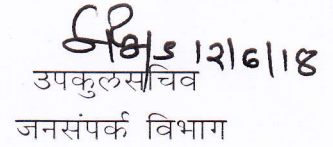 12/6/18
उपकुलसचिव
जनसंपर्क विभाग